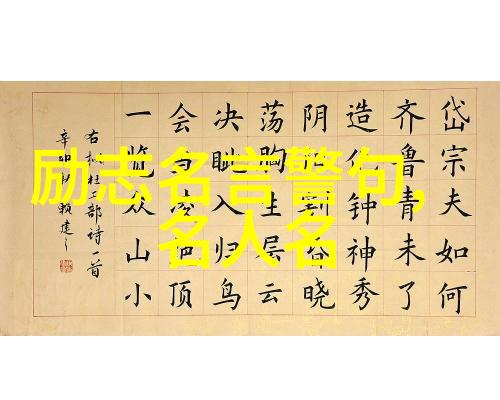 励志名言警句,
名人名
岱宗夫如何
齐鲁青未了
造化钟神秀
阴阳割昏晓
荡胸生层云
决眦入归鸟
会当凌绝顶
一览众山小
右杜工部诗一首
辛卯赖建